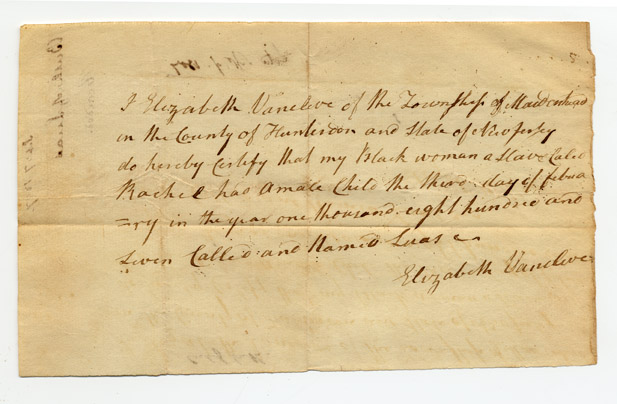 I Elizabeth Vancleve of the Township of Maidenhead
in the County of Hunterdon and State of New Jersey
do hereby Certify that my Black woman a Slave Caled
Rachel has a male Child the third day of februa
=ry in the year one thousand eight hundred and
Seven Called and Named Lucas
Elizabeth Vancleve